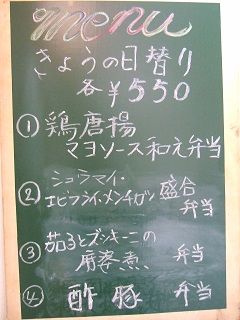 menu
きょうの日替り
各¥550
① 鶏唐揚
マヨソース和え弁当
② シュウマイ・
エビフライ・メンチカツ 盛合
弁当
③ 茄子とズッキーニの
麻婆煮 弁当
④ 酢豚 弁当